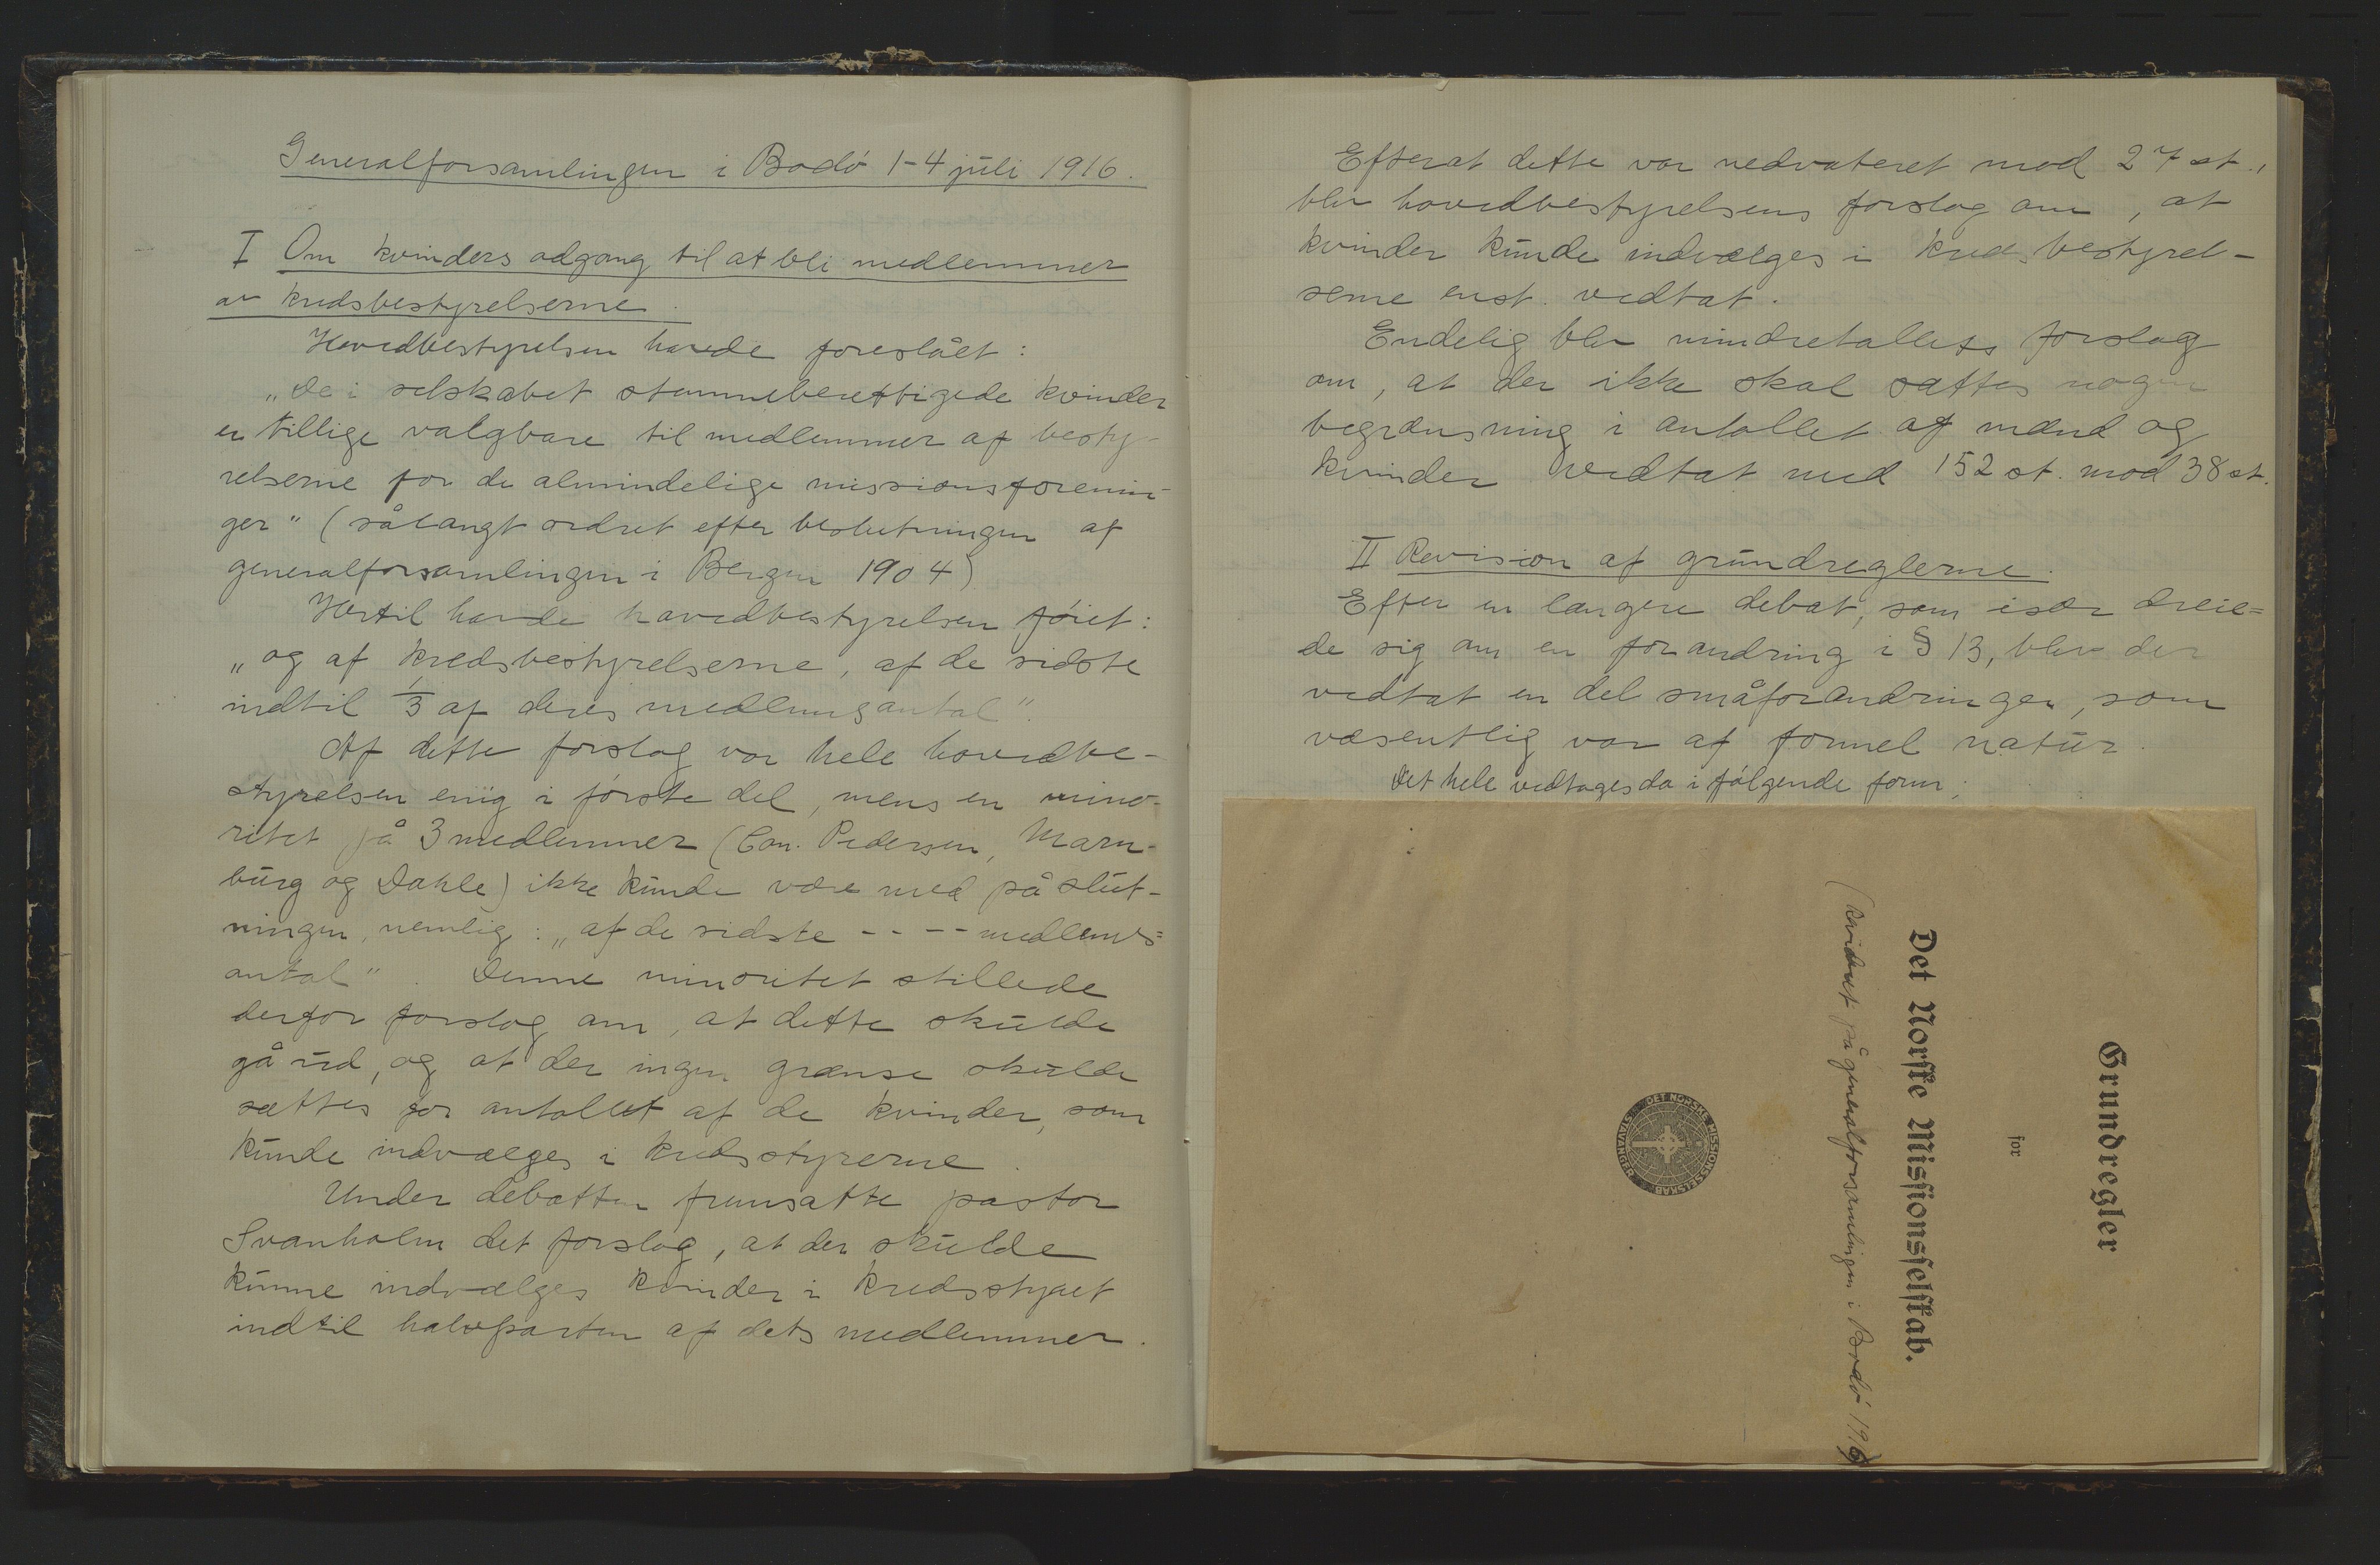 Generalforsamlingen i Bodó 1-4 juli 1916.
I Om kvinders adgang til at bli medlemmer
av kredsbestyrelserne.
Hovedbestyrelsen havde foreslået:
„De i selskabet stemmeberettigede kvinder
er tillige valgbare til medlemmer af besty-
relserne for de almindelige missionsforenin-
ger" (sålangt ordret efter beslutningen af
generalforsamlingen i Bergen 1904)
Hertil havde hovedbestyrelsen fóiet:
„og af kredsbestyrelserne, af de sidste
indtil 1/3 af deres medlemsantal".
Af dette forslag var hele hovedbe-
styrelsen enig i fórste del, mens en mino-
ritet på 3 medlemmer (Pedersen,
og Dahle) ikke kunde være med på slut-
ningen, nemlig: „af de sidste - - - - medlems=
antal". Denne minoritet stillede
derfor forslag om, at dette skulde
gå ud, og at der ingen grænse skulde
sættes for antallet af de kvinder, som
kunde indvælges i kredsstyrerne.
Under debatten fremsatte pastor
Svanholm det forslag, at der skulde
kunne indvælges kvinder i kredsstyret
indtil halvparten af dets medlemmer.
Efterat dette var nedvoteret mod 27 st.,
blev hovedbestyrelsens forslag om, at
kvinder kunde indvælges i kredsbestyrel-
serne enst. vedtat.
Endelig blev mindretallets forslag
om, at der ikke skal sættes nogen
begrænsning i antallet af mænd og
kvinder vedtat med 152 st. mod 38 st.
II Revision af grundreglerne.
Efter en længere debat, som især dreie=
de sig om en forandring i § 13, blev der
vedtat en del småforandringer, som
væsentlig var af formel natur.
Det hele vedtages da i fólgende form:
Grundregler
for
Det Norske Missionsselskab.
(Revideret på generalforsamlingen i Bodó 1916)
DET NORSKE MISSIONSSELSKAB
STAVANGER